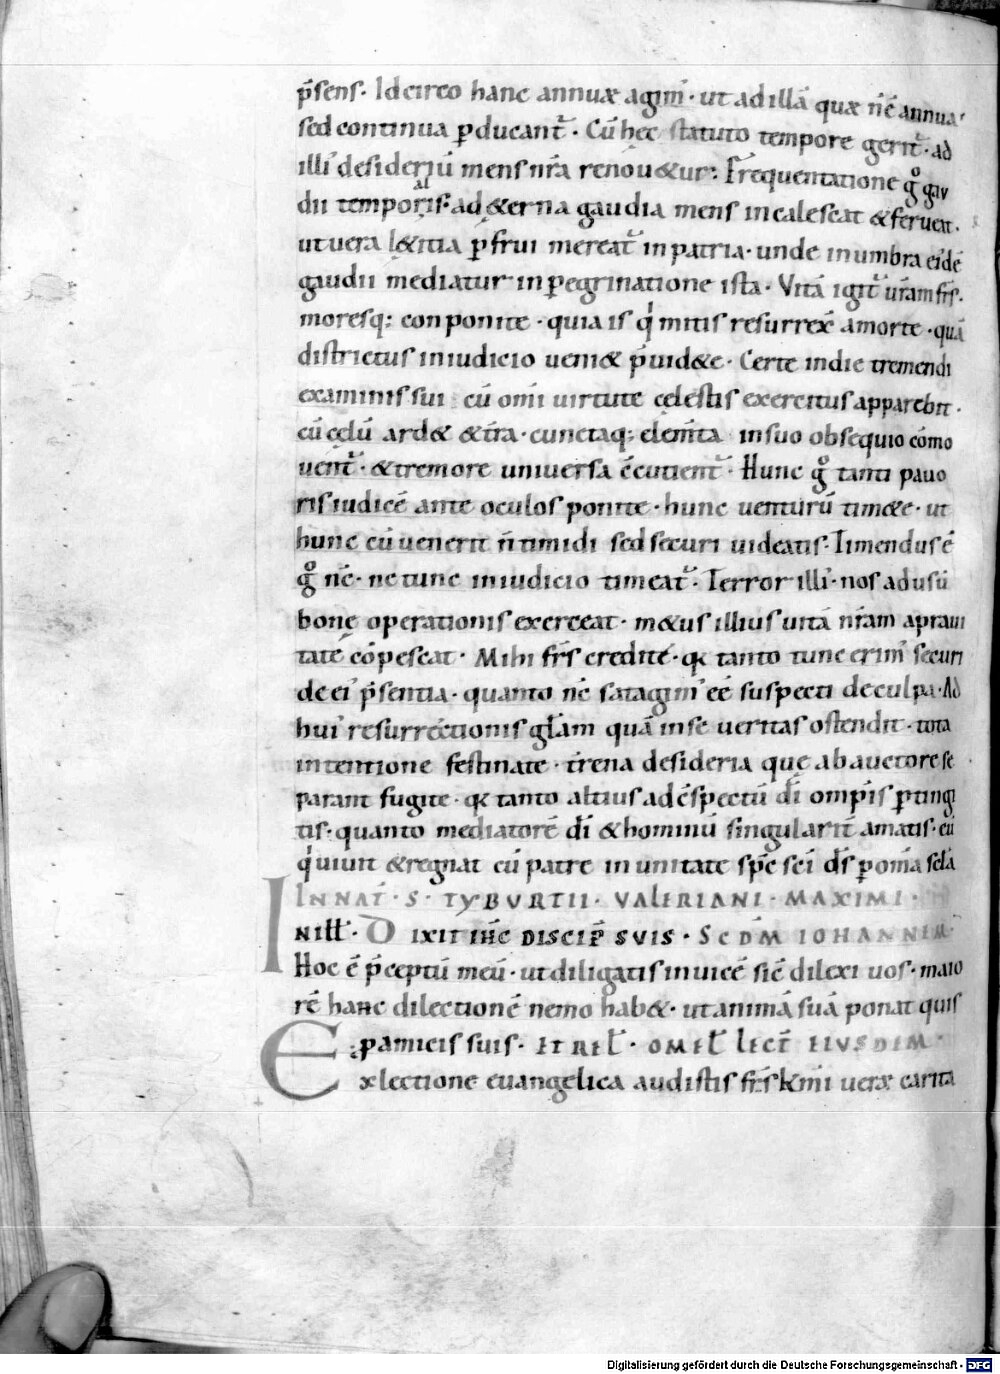 p̄sens. Idcirco hanc annuæ agim᷒. ut ad illā quæ n̄c̄ annua.
sed continua ꝑducant᷑. Cū hęc statuto tempore gerit᷑. ad
illi᷒ desideriū mens nr̄a renou&ur. Frequentatione gͦ gau
dii temporalis. ad &erna gaudia mens incalescat & ferueat.
ut uera l&itia ꝑfrui mereat᷑ in patria. unde in umbra ei᷒dē
gaudii mediatur in ꝑegrinatione ista. Vitā igit᷑ ur̄am fr̄s.
moresq; conponite. quia is qͥ mitis resurrex̄ a morte. quā
districtus in iudicio ueni& p̄uid&e. Certe in die tremendi
examinis sui cū om̄i uirtute cęlestis exercitus apparebit.
cū cęlū ard& & tr̄a. cunctaq; elem̄ta in suo obsequio cōmo
uent᷑. & tremore uniuersa c̄cutient᷑. Hunc gͦ tanti pauo
ris iudicē ante oculos ponite. hunc uenturū tim&e. ut
hunc cū uenerit n̄ timidi sed securi uideatis. Timendus ē
gͦ nc̄. ne tunc in iudicio timeat᷑. Terror illi᷒ nos ad usū
bonę operationis exerceat. m&us illius uitā nr̄am a praui
tate cōpescat. Mihi fr̄s credite. qꝛ tanto tunc erim᷒ securi
de ei᷒ p̄sentia. quanto nc̄ satagim᷒ eē suspecti de culpa. Ad
hui᷒ resurrectionis gl̄am quā in se ueritas ostendit. tota
intentione festinate. tr̄ena desideria quę ab auctore se
parant fugite. qꝛ tanto altius ad c̄spectū dī omp̄is ꝑtingi
tis. quanto mediatorē dī & hominū singularit̄ amatis. cū
qͥ uiuit & regnat cū patre in unitate sp̄c sc̄i ds̄ ꝑ om̄a scl̄a
IN NAT̄. S. TYBVRTII. VALERIANI. MAXIMI.
NILL̄. DIXIT IH̄C DISCIP̄ SVIS. SCD̄M IOHANNEM.
Hoc ē p̄ceptū meū. ut diligatis inuicē sic̄ dilexi uos. maio
rē hanc dilectionē nemo hab&. ut animā suā ponat quis
p amicis suis. ET REL̄. OMEL̄ LECT̄ EIVSDEM.
Ex lectione euangelica audistis fr̄s km̄i ueræ carita
Digitalisierung gefördert durch die Deutsche Forschungsgemeinschaft - DFG